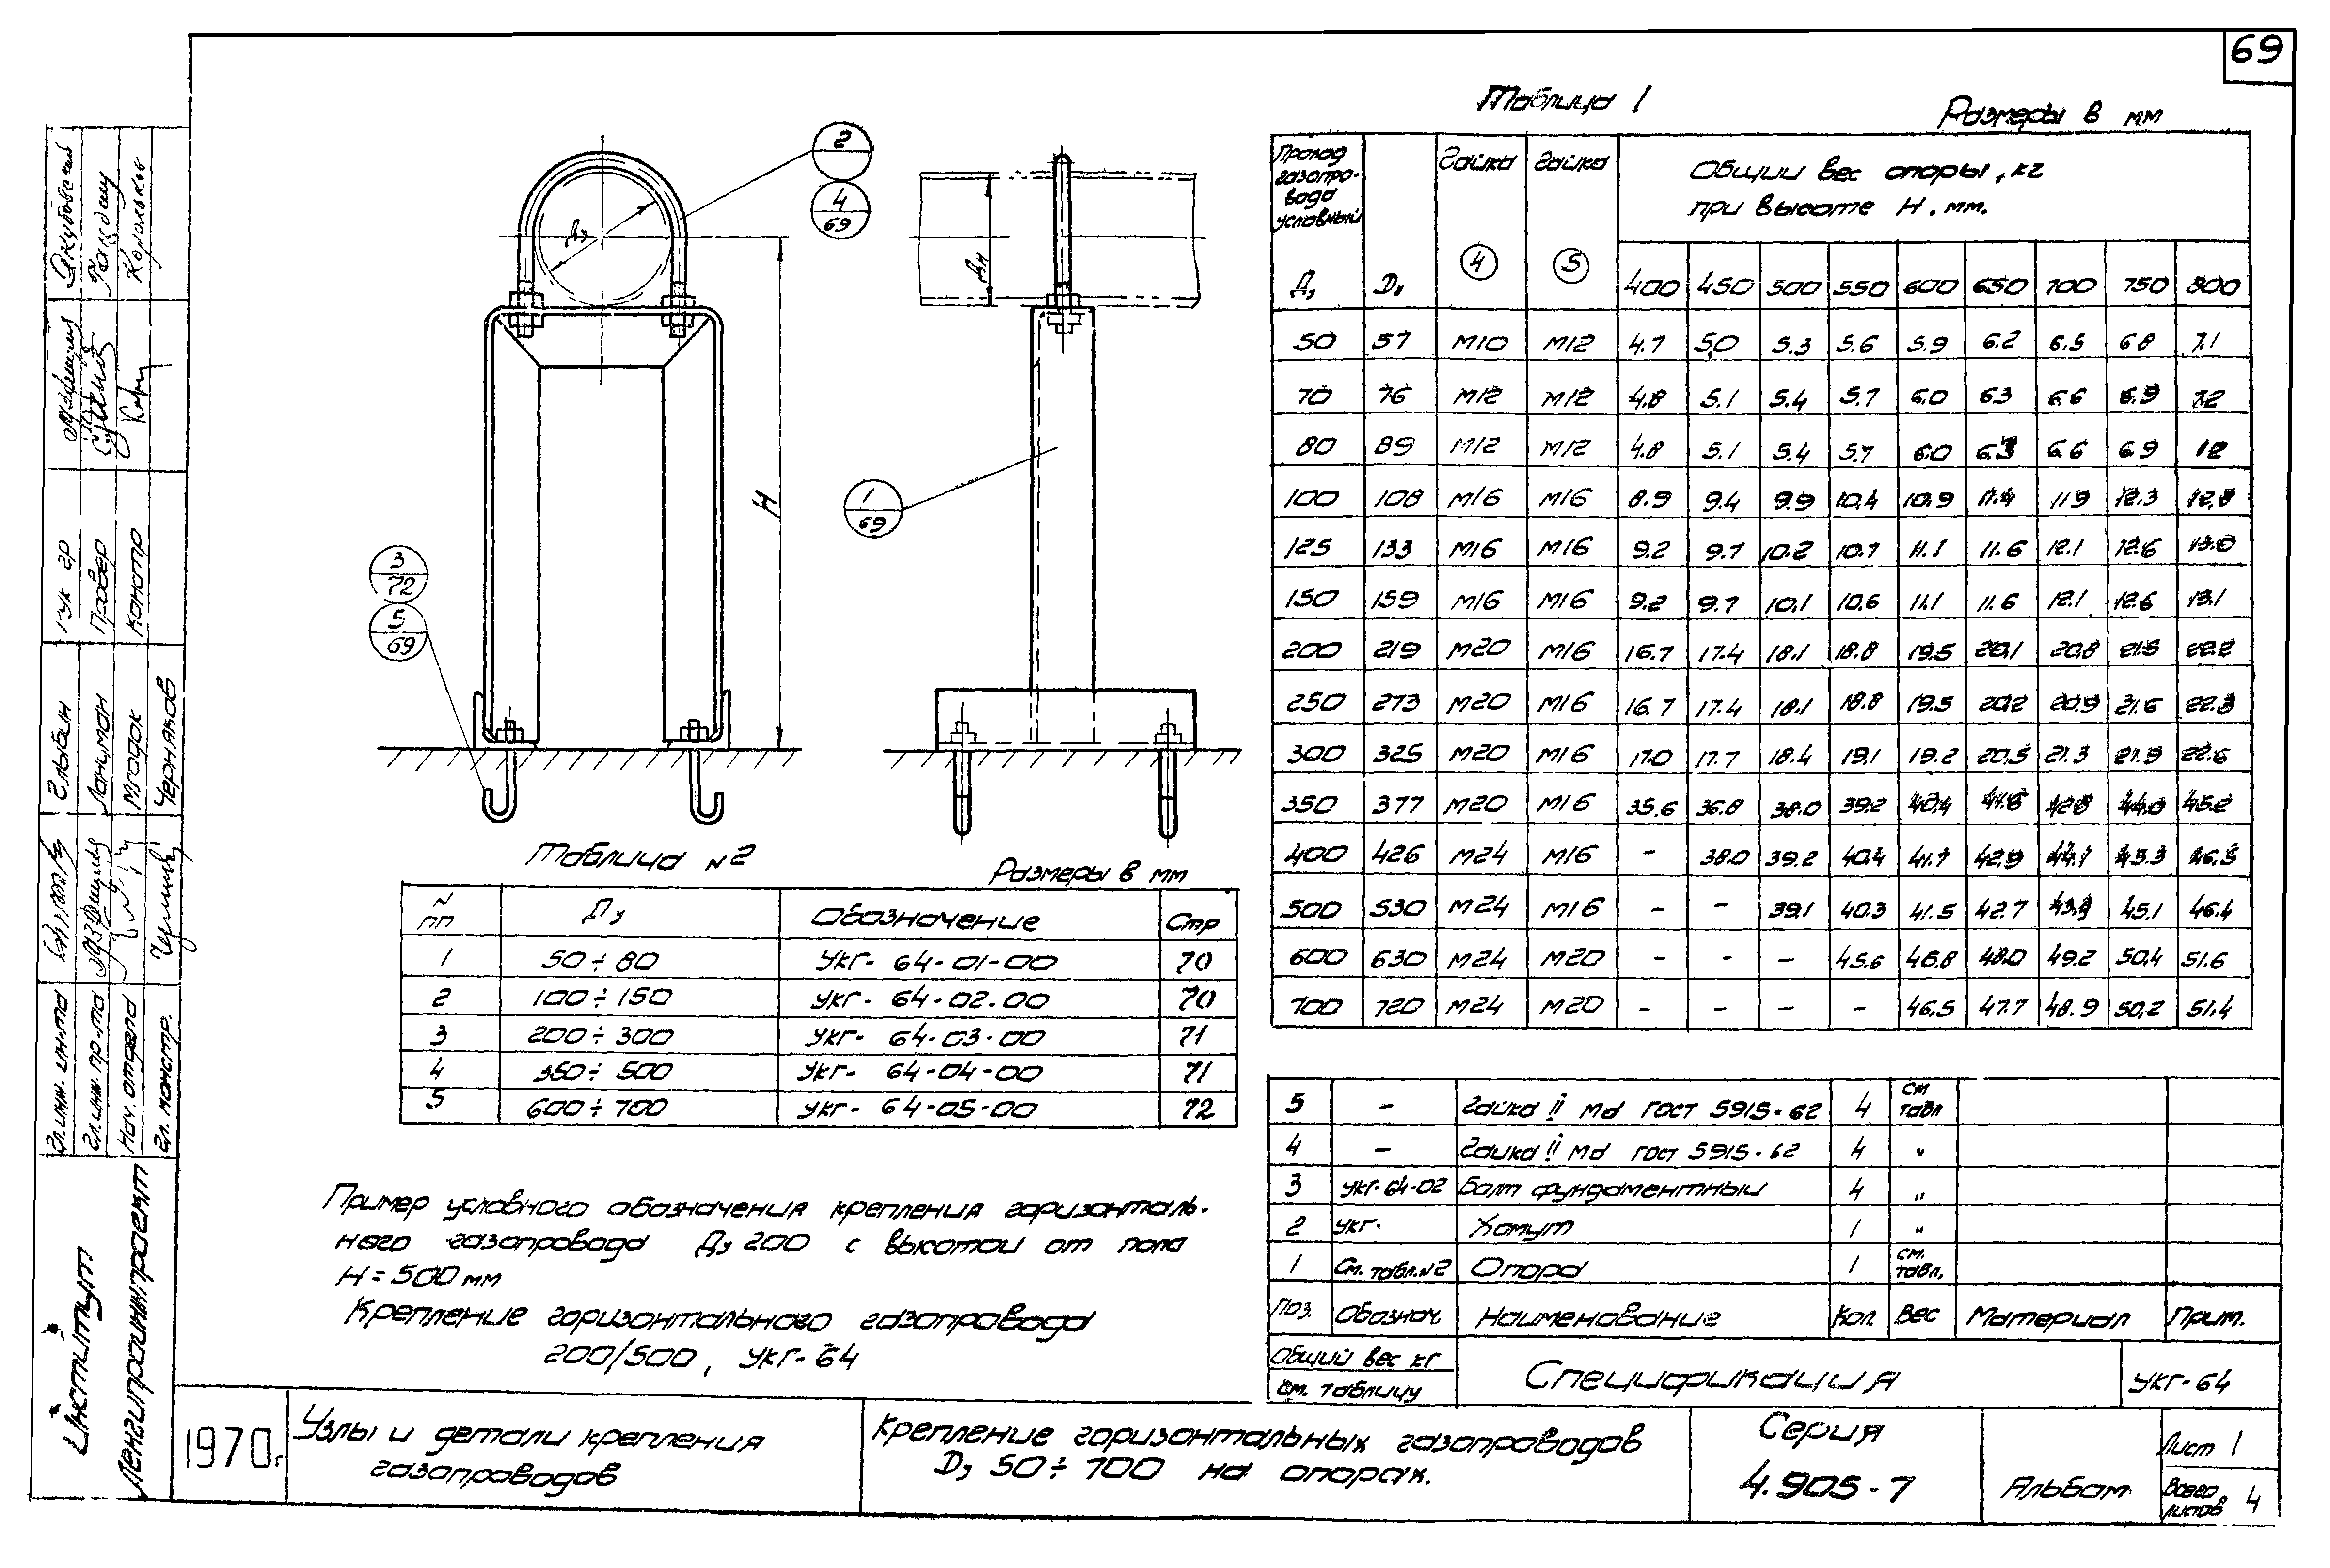 69
Таблица 1
Размеры в мм
Проход газопровода условный Ду | Dн | Гайка 4 | Гайка 5 | Общий вес опоры, кг при высоте Н. мм.
400 450 500 550 600 650 700 750 800
50 57 М10 М12 4.7 5,0 5.3 5.6 5.9 6.2 6.5 6.8 7.1
70 76 М12 М12 4.8 5.1 5.4 5.7 6.0 6.3 6.6 6.9 7.2
80 89 М12 М12 4.8 5.1 5.4 5.7 6.0 6.3 6.6 6.9
100 108 М16 М16 8.9 9.4 9.9 10,4 10,9 11.4 11 9 12.3 12,8
125 133 М16 М16 9.2 9.7 10.2 10.7 11.1 11.6 12.1 12.6 13.0
150 159 М16 М16 9.2 9.7 10,1 10,6 11.1 11.6 12.1 12.6 13.1
200 219 М20 М16 16.7 17.4 18.1 18.8 19.5 20,1 20,8 21.5 22.2
250 273 М20 М16 16.7 17.4 18.1 18.8 19.5 20.2 20.9 21.6 22.3
300 325 М20 М16 17.0 17.7 18.4 19.1 19.2 20,5 21.3 21.9 22.6
350 377 М20 М16 35,6 36.8 38.0 39.2 40,4 41.6 42.8 44.0 45.2
400 426 М24 М16 - 38.0 39.2 40,4 41.7 42.9 44.1 46.5
500 530 М24 М16 - - 39.1 40.3 41.5 42.7 43.9 45.1 46.4
600 630 М24 М20 - - - 45.6 46.8 48.0 49.2 50,4 51.6
700 720 М24 М20 - - - - 46,5 47.7 48.9 50,2 51.4
2
4
69
Ду
Дн
H
1
69
3
72
5
69
Таблица №2
Размеры в мм
N пп | Ду | Обозначение | Стр
1 50÷80 УКГ- 64-01-00 70
2 100÷150 УКГ- 64-02.00 70
3 200÷300 УКГ- 64-03-00 71
4 350÷500 УКГ- 64-04-00 71
5 600÷700 УКГ- 64-05-00 72
Пример условного обозначения крепления горизонталь-
ного газопровода Ду 200 с высотой от пола
Н=500 мм
Крепление горизонтального газопровода
200/500, УКГ-64
5 - Гайка II Мd ГОСТ 5915-62 4 см табл
4 - Гайка II Мd ГОСТ 5915-62 4 "
3 УКГ-64-02 Болт фундаментный 4 "
2 УКГ- Хомут 1 "
1 См. табл.N2 Опора 1 см. табл.
Поз. Обознач. Наименование Кол. Вес Материал Прим.
Общий вес кг
см. таблицу
Спецификация
УКГ-64
1970г.
Узлы и детали крепления
газопроводов
Крепление горизонтальных газопроводов
Ду 50÷700 на опорах.
Серия
4.905-7
Альбом
Лист 1
Всего листов 4
Институт
Ленгипроинжпроект
Гл. инж. ин-та
Гл. инж. пр-та
Нач. отдела
Гл. констр.
Глыбин
Ланцман
Мголок
Черняков
Рук гр
Провер
Констр